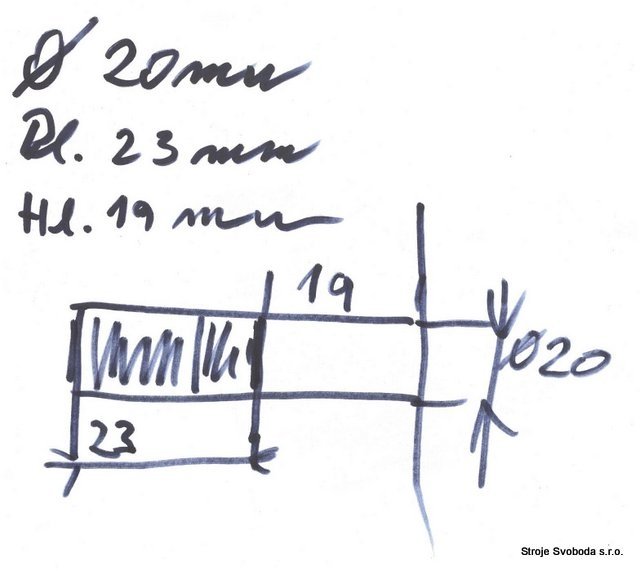 Ø 20 mm
Dl. 23 mm
Hl. 19 mm
19
Ø20
23
Stroje Svoboda s.r.o.